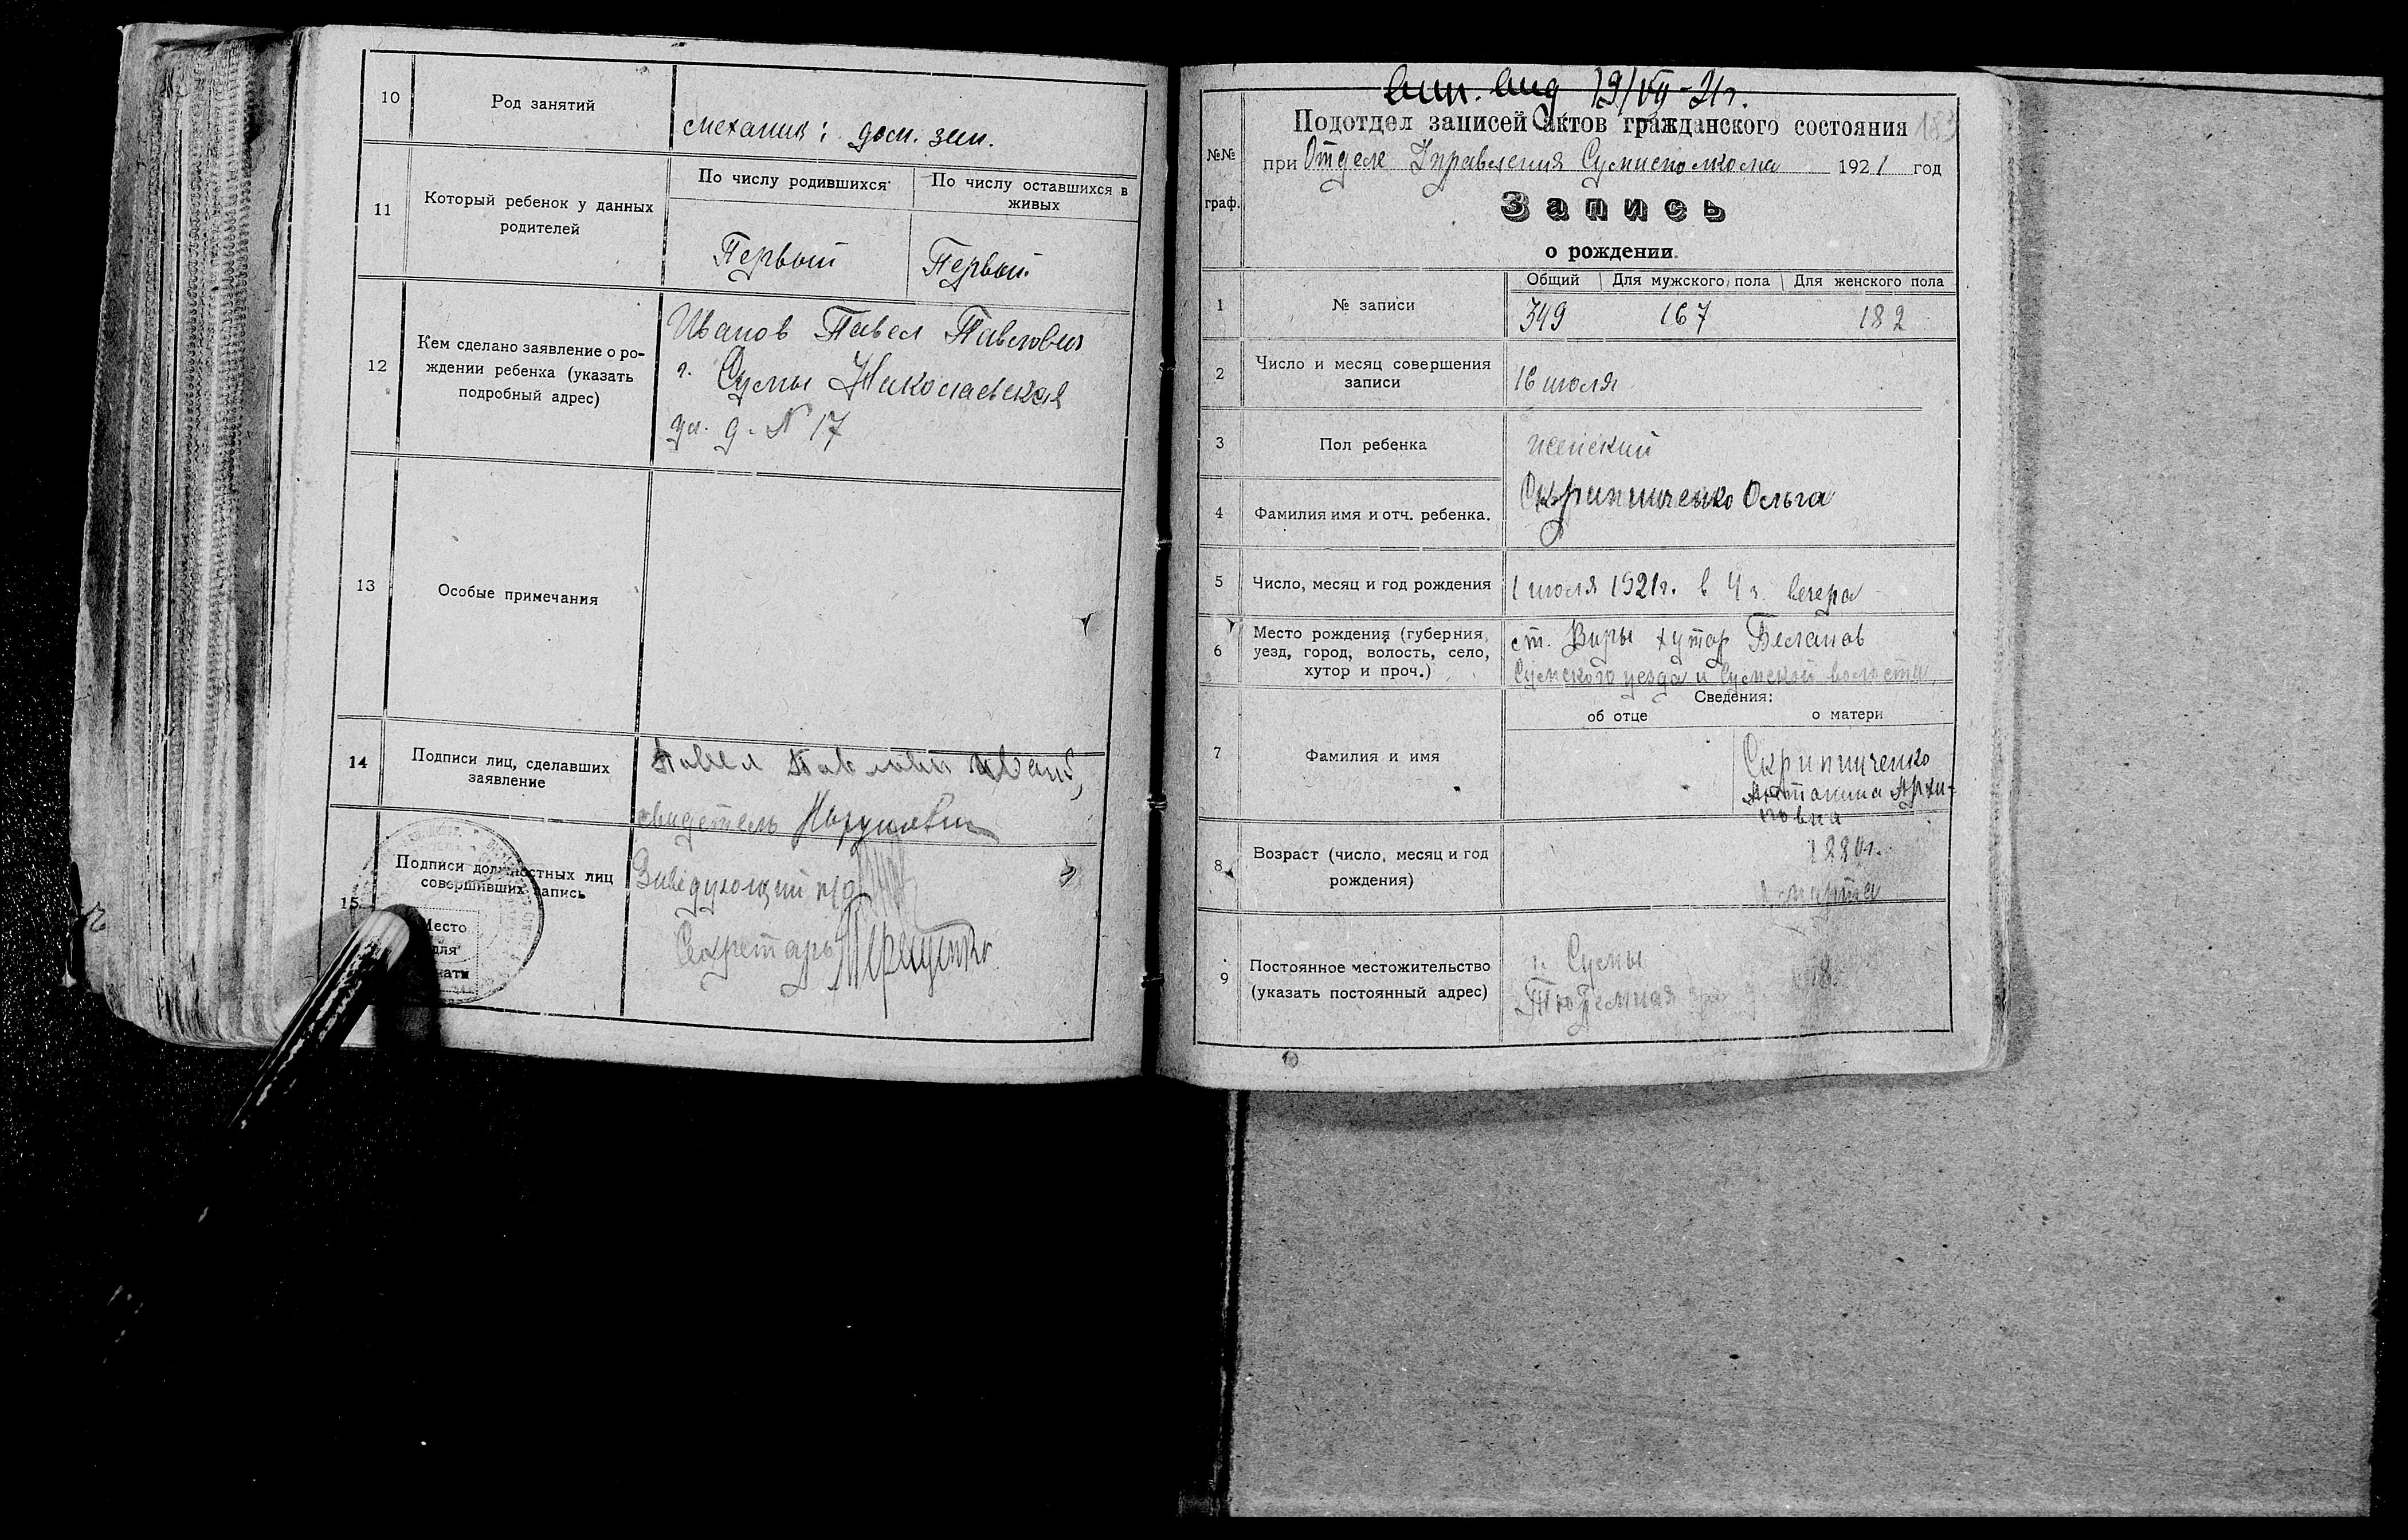 10
Род занятий
механик; дом. зан.
11
Который ребенок у данных
родителей
По числу родившихся
По числу оставшихся в
живых
Первый
Первый
12
Кем сделано заявление о ро-
ждении ребенка (указать
подробный адрес)
Иванов Павел Павлович
г. Сумы Николаевская
ул. д. N 17
13
Особые примечания
14
Подписи лиц, сделавших
заявление
Павел Павлович
свидетель
15
Подписи должностных лиц
совершивших запись
Место
для
Заведующий п/о
Секретарь Терещенко
выд 19/VII-21г.
Подотдел записей актов гражданского состояния 183
№№
граф.
при Отделе Управления Сумисполкома 1921 год
Запись
о рождении.
1
№ записи
Общий
Для мужского пола
Для женского пола
349
167
182
2
Число и месяц совершения
записи
16 июля
3
Пол ребенка
женский
4
Фамилия имя и отч. ребенка.
Скрипниченко Ольга
5
Число, месяц и год рождения
1 июля 1921г. в 4 ч. вечера
6
Место рождения (губерния,
уезд, город, волость, село,
хутор и проч.)
ст. Виры хутор
Сумского уезда и Сумской волости
Сведения:
об отце
о матери
7
Фамилия и имя
Скрипниченко
Антонина Архи-
повна
8
Возраст (число, месяц и год
рождения)
марта
9
Постоянное местожительство
(указать постоянный адрес)
г. Сумы
Тюремная